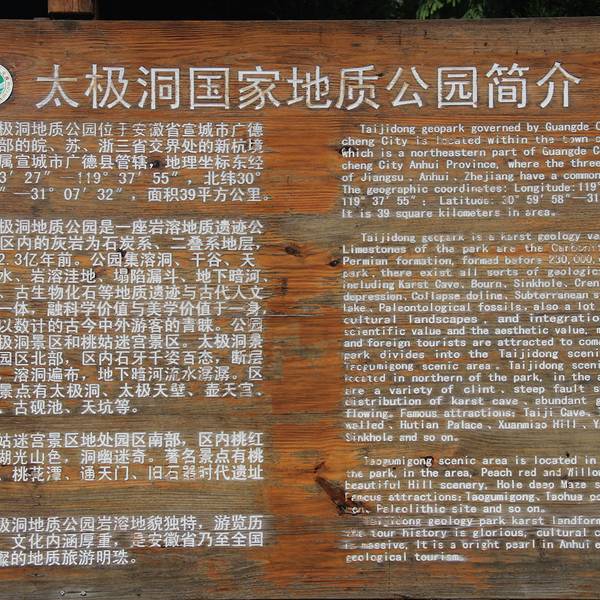 太极洞国家地质公园简介
极洞地质公园位于安徽省宣城市广德
部的皖、苏、浙三省交界处的新杭境
属宣城市广德县管辖,地理坐标东经
3′27″—119°37′55″,北纬30°
″—31°07′32″,面积39平方公里。
极洞地质公园是一座岩溶地质遗迹公
区内的灰岩为石炭系、二叠系地层,
2.3亿年前。公园集溶洞、干谷、天
水、岩溶洼地、塌陷漏斗、地下暗河、
、古生物化石等地质遗迹与古代人文
一体,融科学价值与美学价值于一身,
以数计的古今中外游客的青睐。公园
极洞景区和桃姑迷宫景区。太极洞景
园区北部,区内石牙千姿百态,断层
、溶洞遍布,地下暗河流水潺潺。区
景点有太极洞、太极天壁、壶天宫、
、古砚池、天坑等。
姑迷宫景区地处园区南部,区内桃红
湖光山色,洞幽迷奇。著名景点有桃
、桃花潭、通天门、旧石器时代遗址
极洞地质公园岩溶地貌独特,游览历
,文化内涵厚重,是安徽省乃至全国
璨的地质旅游明珠。
Taijidong geopark governed by Guangde C
cheng City is located within the town o
which is a northeastern part of Guangde C
cheng City Anhui Province, where the three
of Jiangsu, Anhui, Zhejiang have a common
The geographic coordinates: Longitude:119°
119° 37′ 55″; Latitude: 30° 59′ 58″—31
It is 39 square kilometers in area.
Taijidong geopark is a karst geology va
Limestones of the park are the Carboni
Permian formation, formed before 230,000,
park, there exist all sorts of geologic
including Karst Cave, Bourn, Sinkhole, Cren
depression, Collapse doline, Subterranean s
lake, Paleontological fossils, also a lot
cultural landscapes, and integration
scientific value and the aesthetic value, m
and foreign tourists are attracted to coma
park divides into the Taijidong sceni
Taogumigong scenic area. Taijidong sceni
located in northern of the park, in the a
are a variety of clint, steep fault s
distribution of karst cave, abundant g
flowing. Famous attractions: Taiji Cave,
walled, Hutian Palace, Xuanmiao Hill, Y
Sinkhole and so on.
Taogumigong scenic area is located in
the park, in the area, Peach red and Willow
beautiful Hill scenery, Hole deep Maze s
Famous attractions: Taogumigong, Taohua po
Paleolithic site and so on.
Taijidong geology park karst landform
tour history is glorious, cultural c
is massive, It is a bright pearl in Anhui
geological tourism.